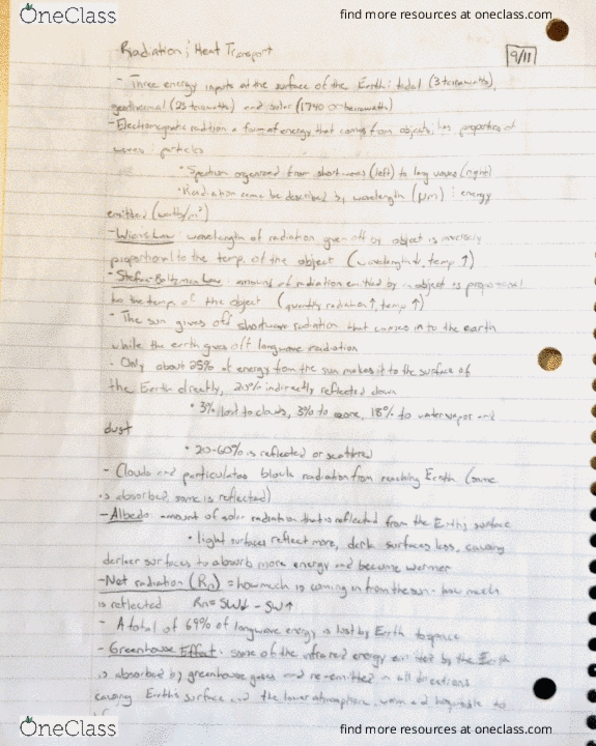 OneClass
find more resources at oneclass.com
Radiation & Heat Transport
9/11
- Three energy inputs at the surface of the Earth: tidal (3 terawatts),
geothermal (23 terawatts) and solar (1740
- Electromagnetic radiation a form of energy that comes from objects, has properties of
waves & particles
• Spectrum organized from short waves (left) to long waves (right)
• Radiation can be described by wavelength (μm) & energy
emitted (watts/m²)
- Wien's Law wavelength of radiation given off by object is inversely
proportional to the temp. of the object (wavelength↓, temp ↑)
- Stefan-Boltzman Law: amount of radiation emitted by object is proportional
to the temp. of the object (quantity radiation↑, temp ↑)
- The sun gives off shortwave radiation that comes in to the earth
while the earth gives off longwave radiation
- Only about 25% of energy from the sun makes it to the surface of
the Earth directly, indirectly reflected down
• 3% lost to clouds, 3% to ozone, 18% to water vapor and
dust
• 20-60% is reflected or scattered
- Clouds and particulates block radiation from reaching Earth (some
is absorbed, some is reflected)
- Albedo: amount of solar radiation that is reflected from the Earth's surface
• light surfaces reflect more, dark surfaces less, causing
darker surfaces to absorb more energy and become warmer
- Net radiation (Rn) = how much is coming in from the sun - how much
is reflected Rn = SW↓ - SW↑
- A total of 69% of longwave energy is lost by Earth to space
- Greenhouse Effect: some of the infrared energy emitted by the Earth
is absorbed by greenhouse gases and re-emitted in all directions
causing Earth's surface and the lower atmosphere, warm and
OneClass
find more resources at oneclass.com